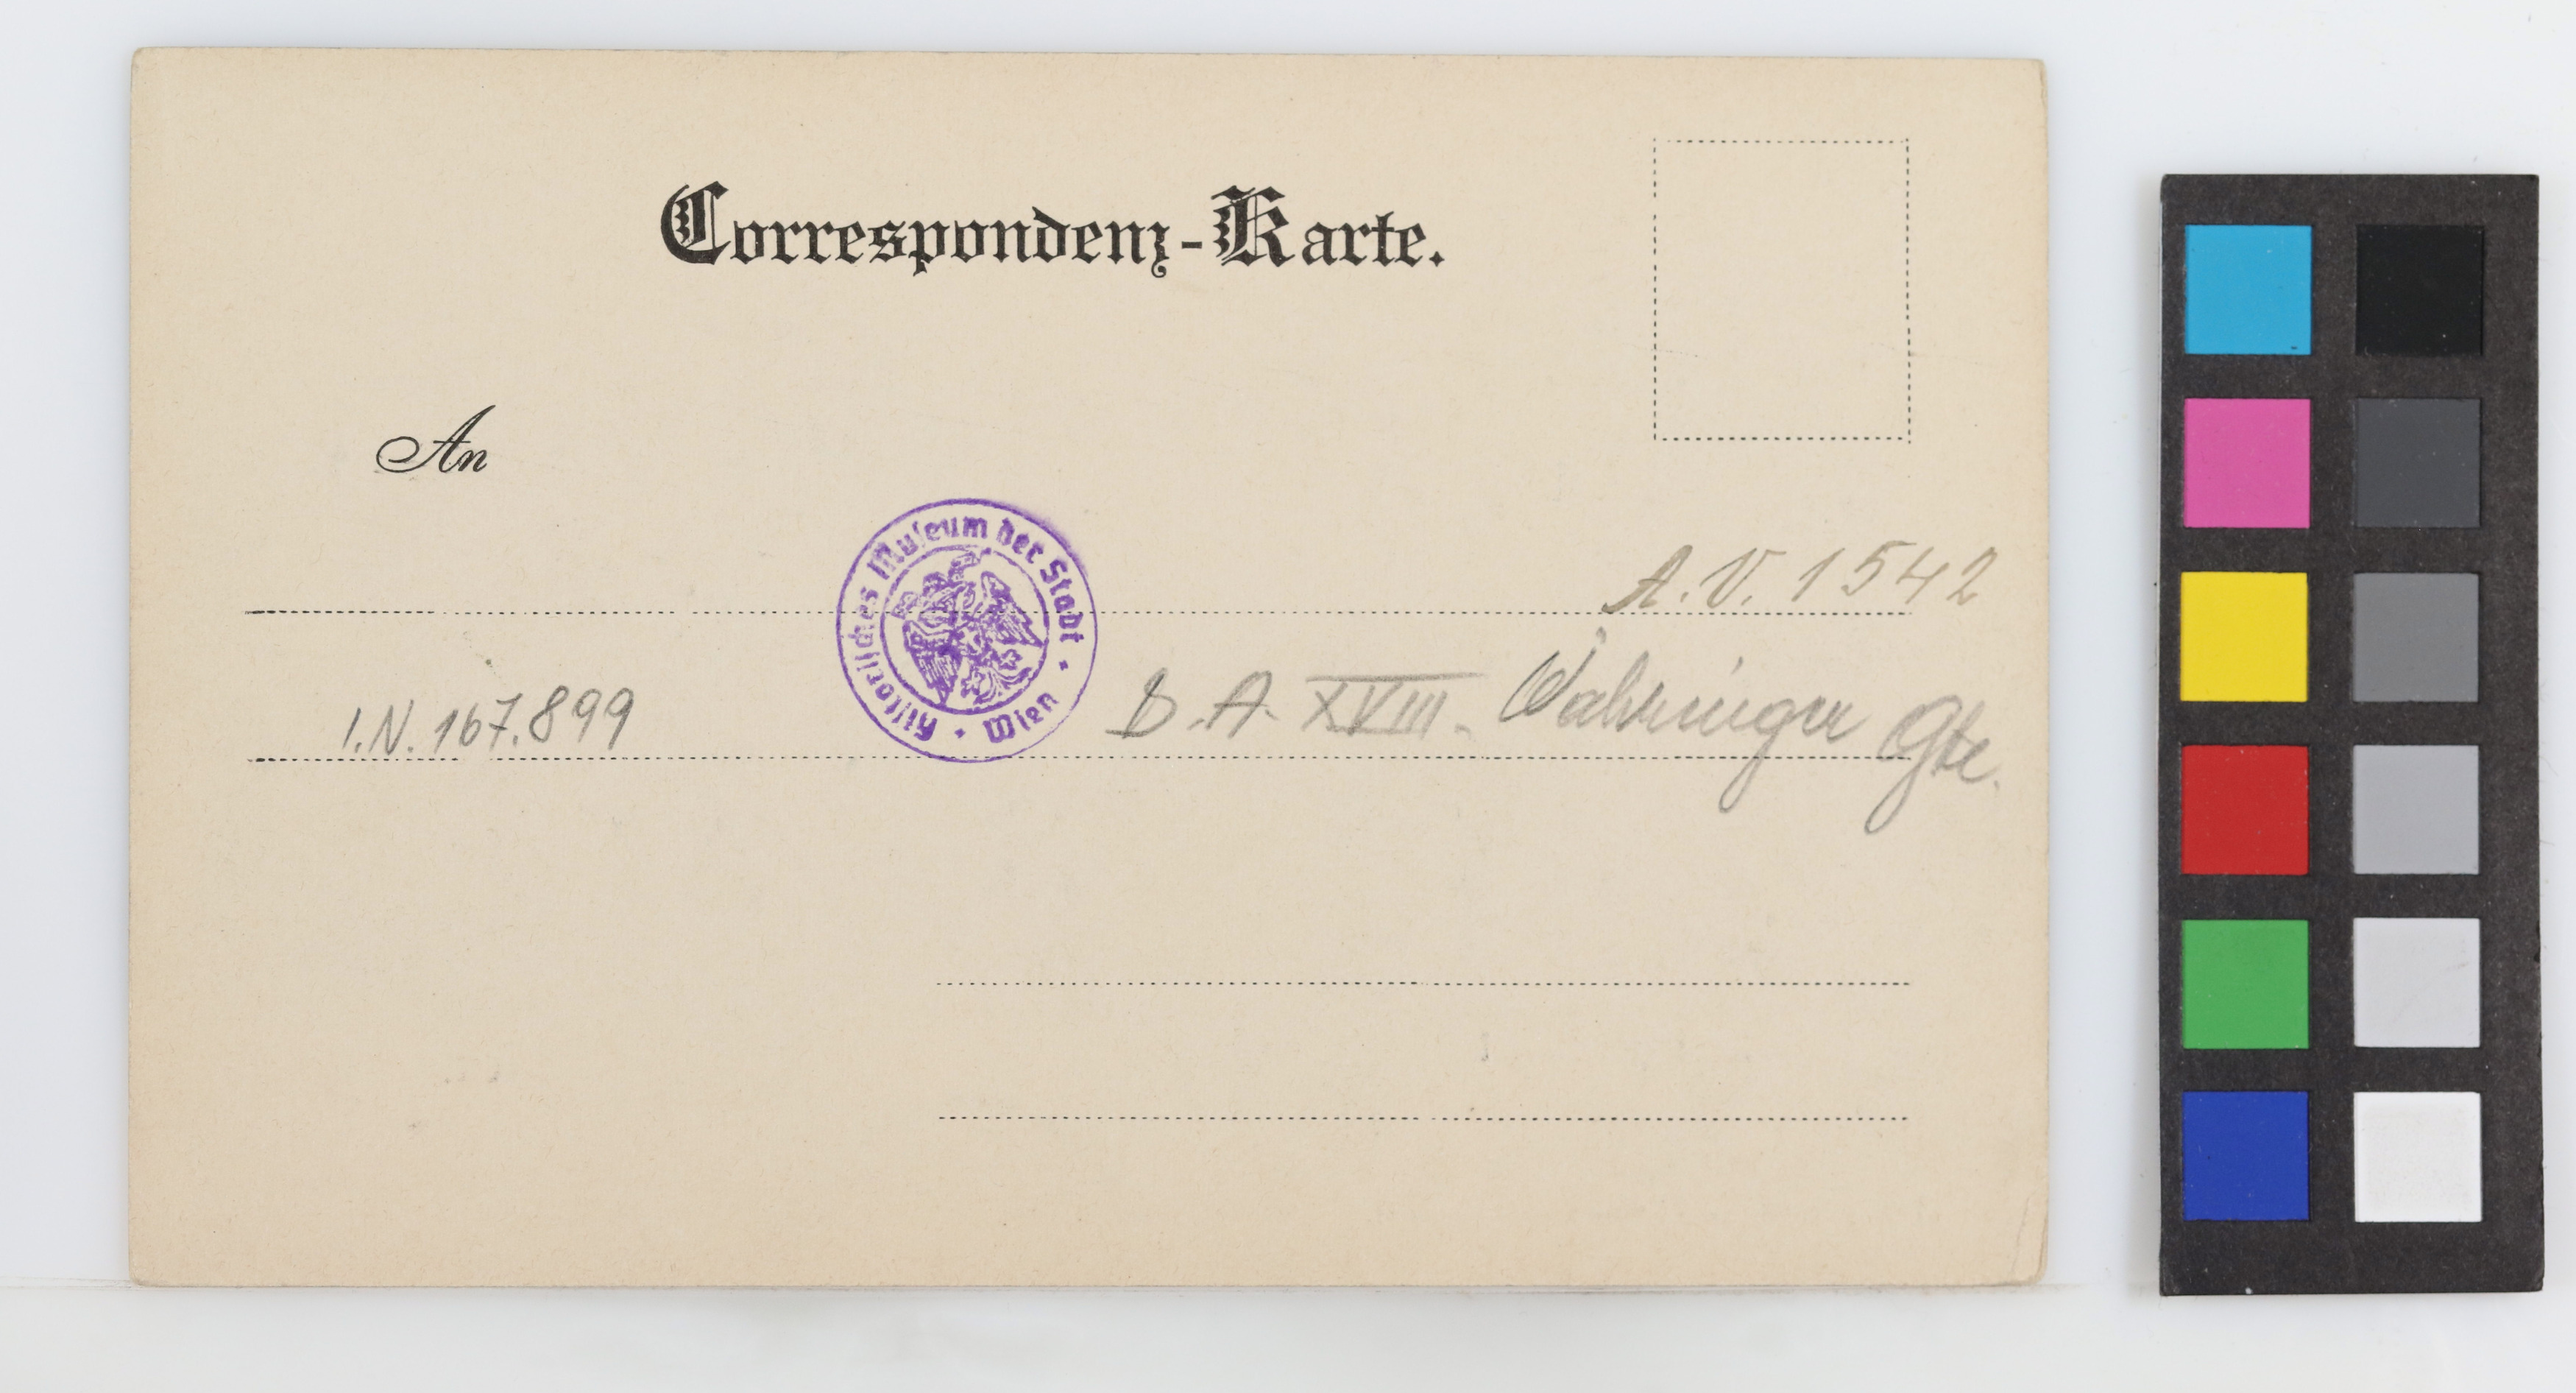 Correspondenz-Karte.
An
Historisches Museum der Stadt Wien
A.V. 1542
I.N. 167.899
D.A. XVIII. Währinger Gte.